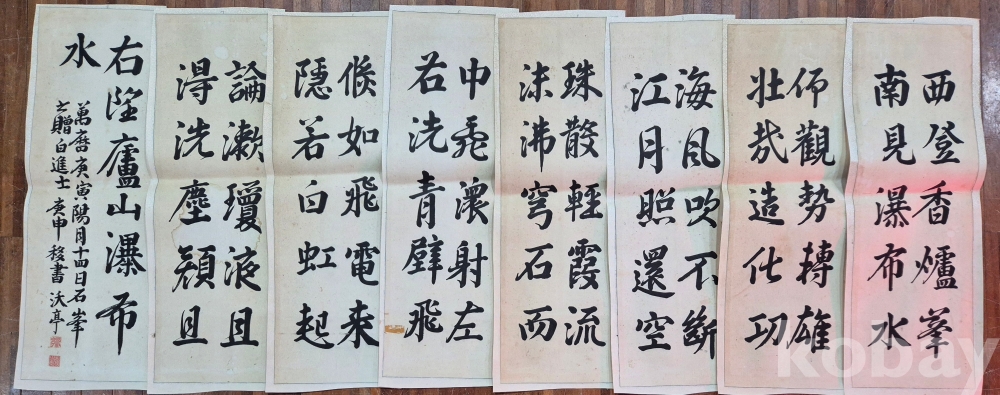 西登香爐峯
南見瀑布水
仰觀勢轉雄
壯哉造化功
海風吹不斷
江月照還空
珠散輕霞流
沫沸穹石而
巾飛濃射左
右洗青壁飛
倏如飛電來
隱若白虹起
論漱瓊液且
得洗塵顔且
右望廬山瀑布
水
萬曆庚寅陽月十四日石峯
贈白進士 庚申 移書 沃亭
kobay